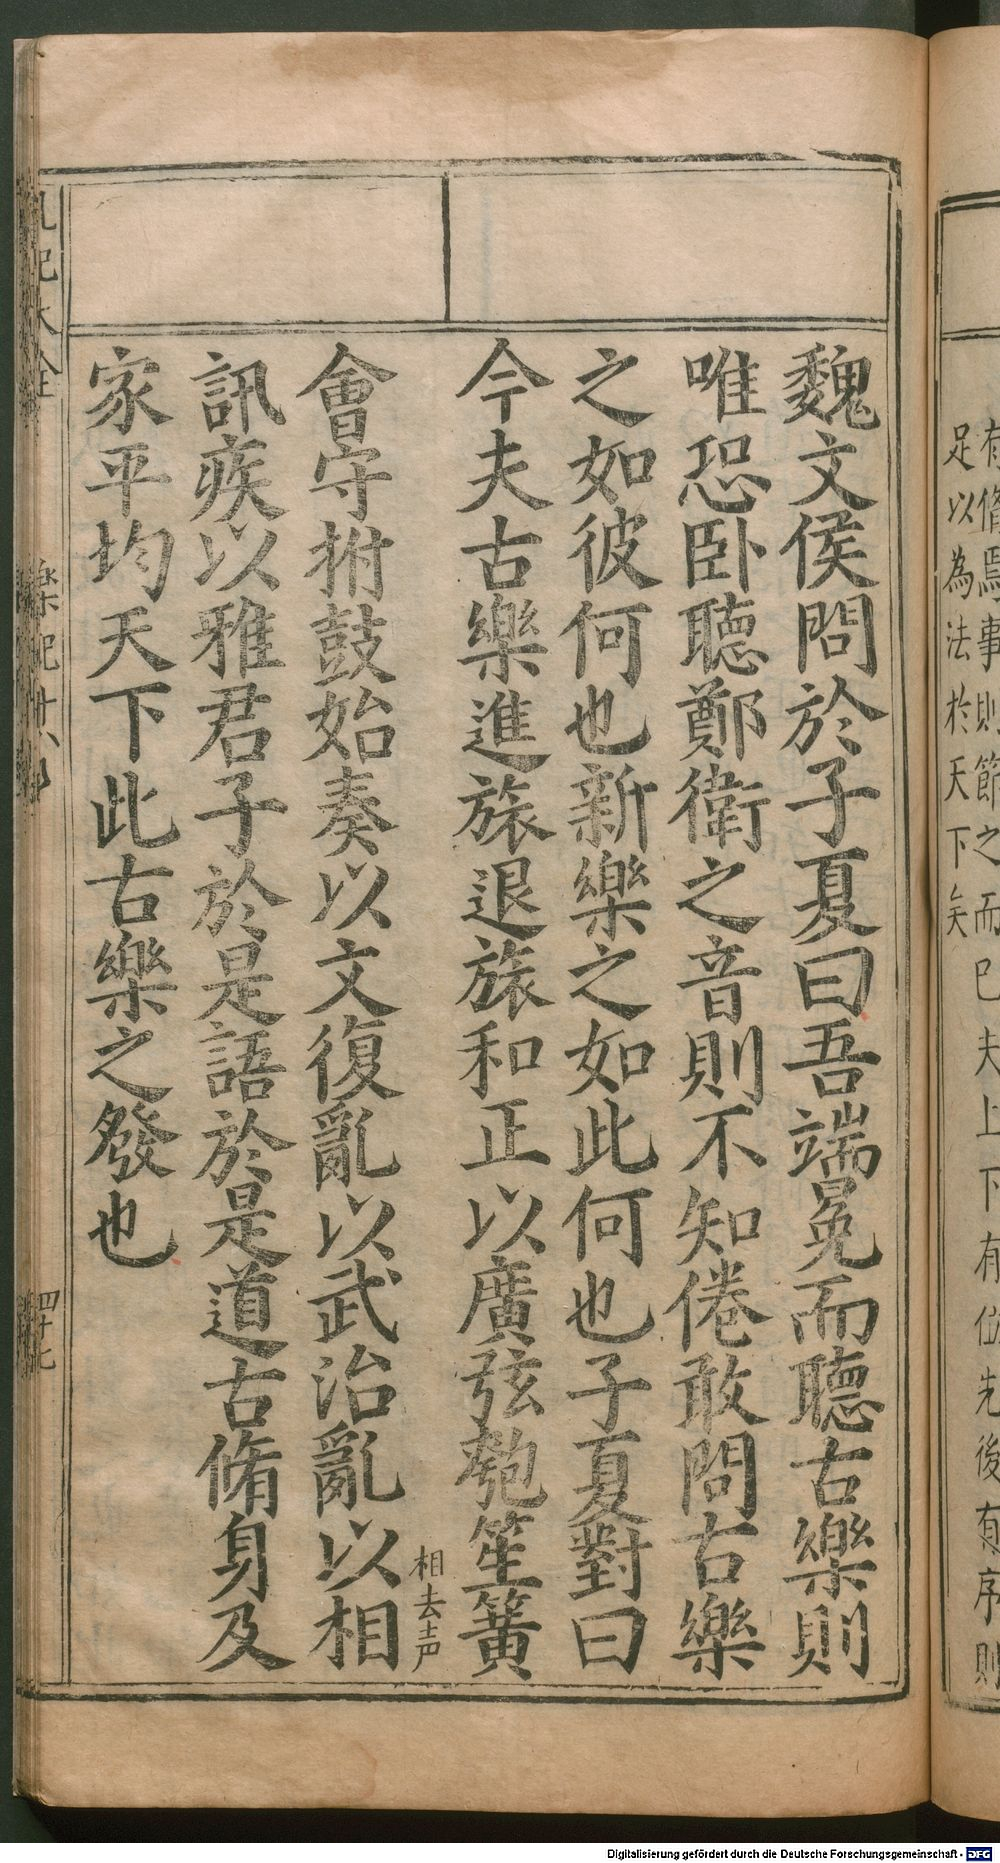 有脩焉事則節之而已夫上下有位先後有序則
足以為法於天下矣
魏文侯問於子夏曰吾端冕而聽古樂則
唯恐卧聽鄭衛之音則不知倦敢問古樂
之如彼何也新樂之如此何也子夏對曰
今夫古樂進旅退旅和正以廣弦匏笙簧
會守拊鼓始奏以文復亂以武治亂以相
相去声
訊疾以雅君子於是語於是道古脩身及
家平均天下此古樂之發也
礼記大全
樂記十八卷
四十七
Digitalisierung gefördert durch die Deutsche Forschungsgemeinschaft - DFG